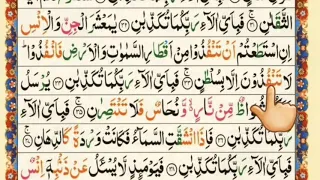 الثَّقَلٰنِ ۚ﴿۳۱﴾ فَبِاَیِّ اٰلَآءِ رَبِّکُمَا تُکَذِّبٰنِ ﴿۳۲﴾ یٰمَعْشَرَ الْجِنِّ وَالْاِنْسِ
اِنِ اسْتَطَعْتُمْ اَنْ تَنْفُذُوْا مِنْ اَقْطَارِ السَّمٰوٰتِ وَالْاَرْضِ فَانْفُذُوْا ؕ
لَا تَنْفُذُوْنَ اِلَّا بِسُلْطٰنٍ ۚ﴿۳۳﴾ فَبِاَیِّ اٰلَآءِ رَبِّکُمَا تُکَذِّبٰنِ ﴿۳۴﴾ یُرْسَلُ
شُوَاظٌ مِّنْ نَّارٍ ۙ۬ وَّ نُحَاسٌ فَلَا تَنْتَصِرٰنِ ۚ﴿۳۵﴾ فَبِاَیِّ اٰلَآءِ
رَبِّکُمَا تُکَذِّبٰنِ ﴿۳۶﴾ فَاِذَا انْشَقَّتِ السَّمَآءُ فَکَانَتْ وَرْدَةً کَالدِّهَانِ ۚ﴿۳۷﴾
فَبِاَیِّ اٰلَآءِ رَبِّکُمَا تُکَذِّبٰنِ ﴿۳۸﴾ فَیَوْمَئِذٍ لَّا یُسْـَٔلُ عَنْ ذَنْۢبِهٖۤ اِنْسٌ